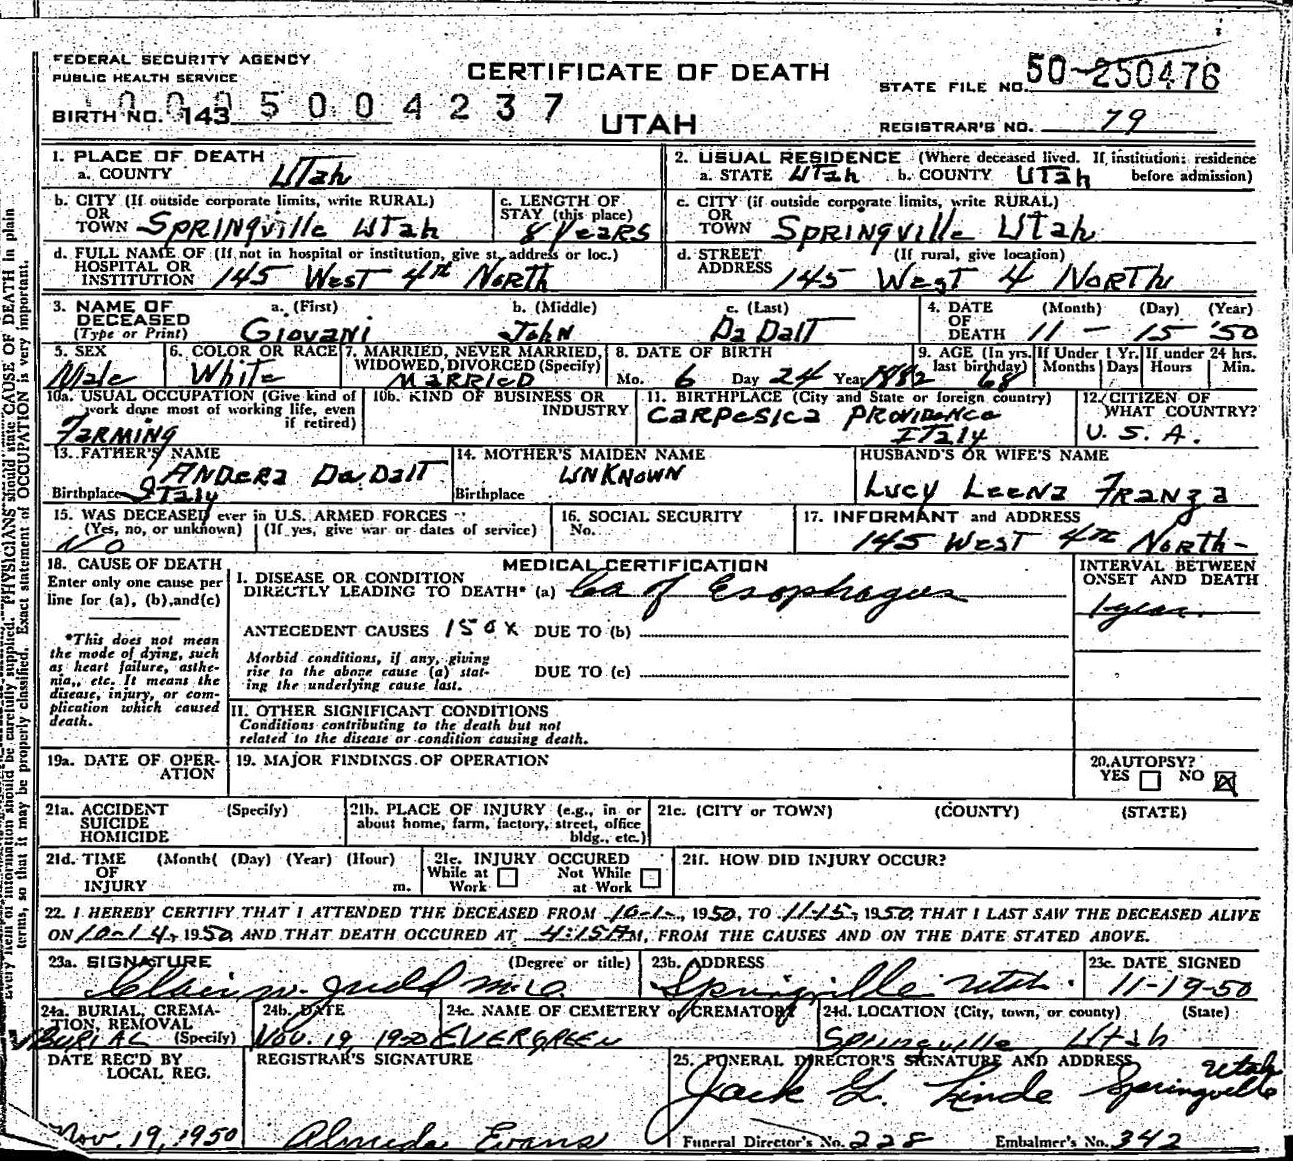 FEDERAL SECURITY AGENCY
PUBLIC HEALTH SERVICE
CERTIFICATE OF DEATH
STATE FILE NO. 50-250476
BIRTH NO. 143 0005004237
UTAH
REGISTRAR'S NO. 79
1. PLACE OF DEATH
a. COUNTY Utah
2. USUAL RESIDENCE (Where deceased lived. If institution: residence before admission)
a. STATE Utah b. COUNTY Utah
b. CITY (If outside corporate limits, write RURAL)
OR TOWN Springville Utah
c. LENGTH OF STAY (this place) 8 Years
c. CITY (if outside corporate limits, write RURAL)
OR TOWN Springville Utah
d. FULL NAME OF (If not in hospital or institution, give st. address or loc.)
HOSPITAL OR INSTITUTION 145 West 4th North
d. STREET ADDRESS (If rural, give location)
145 West 4 North
3. NAME OF DECEASED (Type or Print)
a. (First) Giovani
b. (Middle) John
c. (Last) Da Dalt
4. DATE OF DEATH (Month) (Day) (Year)
11 - 15 '50
5. SEX Male
6. COLOR OR RACE White
7. MARRIED, NEVER MARRIED, WIDOWED, DIVORCED (Specify) Married
8. DATE OF BIRTH
Mo. 6 Day 24 Year 1882
9. AGE (In yrs. last birthday) 68
If Under 1 Yr. Months Days
If under 24 hrs. Hours Min.
10a. USUAL OCCUPATION (Give kind of work done most of working life, even if retired)
Farming
10b. KIND OF BUSINESS OR INDUSTRY
11. BIRTHPLACE (City and State or foreign country)
Carpesica Providence
Italy
12. CITIZEN OF WHAT COUNTRY?
U. S. A.
13. FATHER'S NAME
Andera Da Dalt
Birthplace Italy
14. MOTHER'S MAIDEN NAME
Unknown
Birthplace
HUSBAND'S OR WIFE'S NAME
Lucy Leena Franza
15. WAS DECEASED ever in U.S. ARMED FORCES
(Yes, no, or unknown) (If yes, give war or dates of service)
No
16. SOCIAL SECURITY No.
17. INFORMANT and ADDRESS
145 West 4th North-
18. CAUSE OF DEATH
Enter only one cause per line for (a), (b), and (c)
*This does not mean the mode of dying, such as heart failure, asthenia, etc. It means the disease, injury, or complication which caused death.
MEDICAL CERTIFICATION
INTERVAL BETWEEN ONSET AND DEATH
I. DISEASE OR CONDITION
DIRECTLY LEADING TO DEATH* (a) Ca of Esophagus
1 year.
ANTECEDENT CAUSES 150X DUE TO (b)
Morbid conditions, if any, giving rise to the above cause (a) stating the underlying cause last.
DUE TO (c)
II. OTHER SIGNIFICANT CONDITIONS
Conditions contributing to the death but not related to the disease or condition causing death.
19a. DATE OF OPERATION
19. MAJOR FINDINGS OF OPERATION
20. AUTOPSY?
YES NO
21a. ACCIDENT SUICIDE HOMICIDE (Specify)
21b. PLACE OF INJURY (e.g., in or about home, farm, factory, street, office bldg., etc.)
21c. (CITY or TOWN) (COUNTY) (STATE)
21d. TIME OF INJURY (Month( (Day) (Year) (Hour) m.
21e. INJURY OCCURED
While at Work Not While at Work
21f. HOW DID INJURY OCCUR?
22. I HEREBY CERTIFY THAT I ATTENDED THE DECEASED FROM 10-1-, 1950, TO 11-15-, 1950, THAT I LAST SAW THE DECEASED ALIVE
ON 10-14-, 1950, AND THAT DEATH OCCURED AT 4:15AM, FROM THE CAUSES AND ON THE DATE STATED ABOVE.
23a. SIGNATURE (Degree or title)
Judd M.D.
23b. ADDRESS
Springville Utah.
23c. DATE SIGNED
11-19-50
24a. BURIAL, CREMATION, REMOVAL (Specify)
Burial
24b. DATE
Nov. 19, 1950
24c. NAME OF CEMETERY or CREMATORY
Evergreen
24d. LOCATION (City, town, or county) (State)
Springville, Utah
DATE REC'D BY LOCAL REG.
Nov. 19, 1950
REGISTRAR'S SIGNATURE
Almeda Evans
25. FUNERAL DIRECTOR'S SIGNATURE AND ADDRESS
Jack Springville Utah
Funeral Director's No. 228 Embalmer's No. 342
Every item of information should be carefully supplied. PHYSICIANS should state CAUSE OF DEATH in plain
terms, so that it may be properly classified. Exact statement of OCCUPATION is very important.